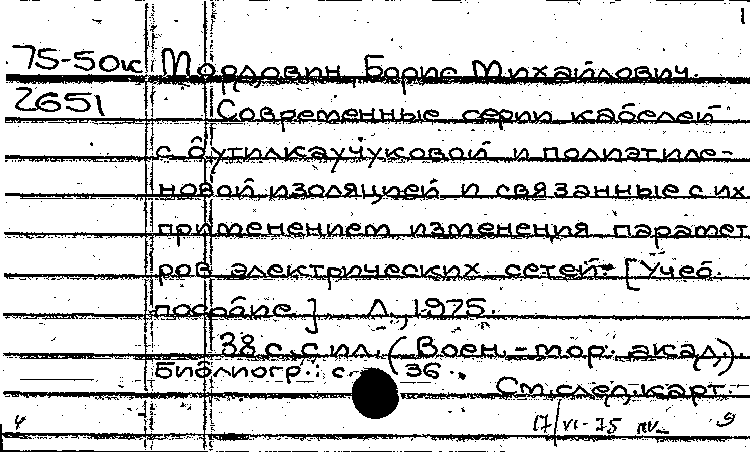 1
75-50к Мордовин, Борис Михайлович.
2651 Современные серии кабелей
с бутилкаучуковой и полиэтиле-
новой изоляцией и связанные с их
применением изменения парамет
ров электрических сетей. [Учеб.
пособие]. Л., 1975.
38 с. с ил. (Воен.-мор. акад.).
Библиогр.: с. 36.
См. след. карт.
4 17/VI-75 9